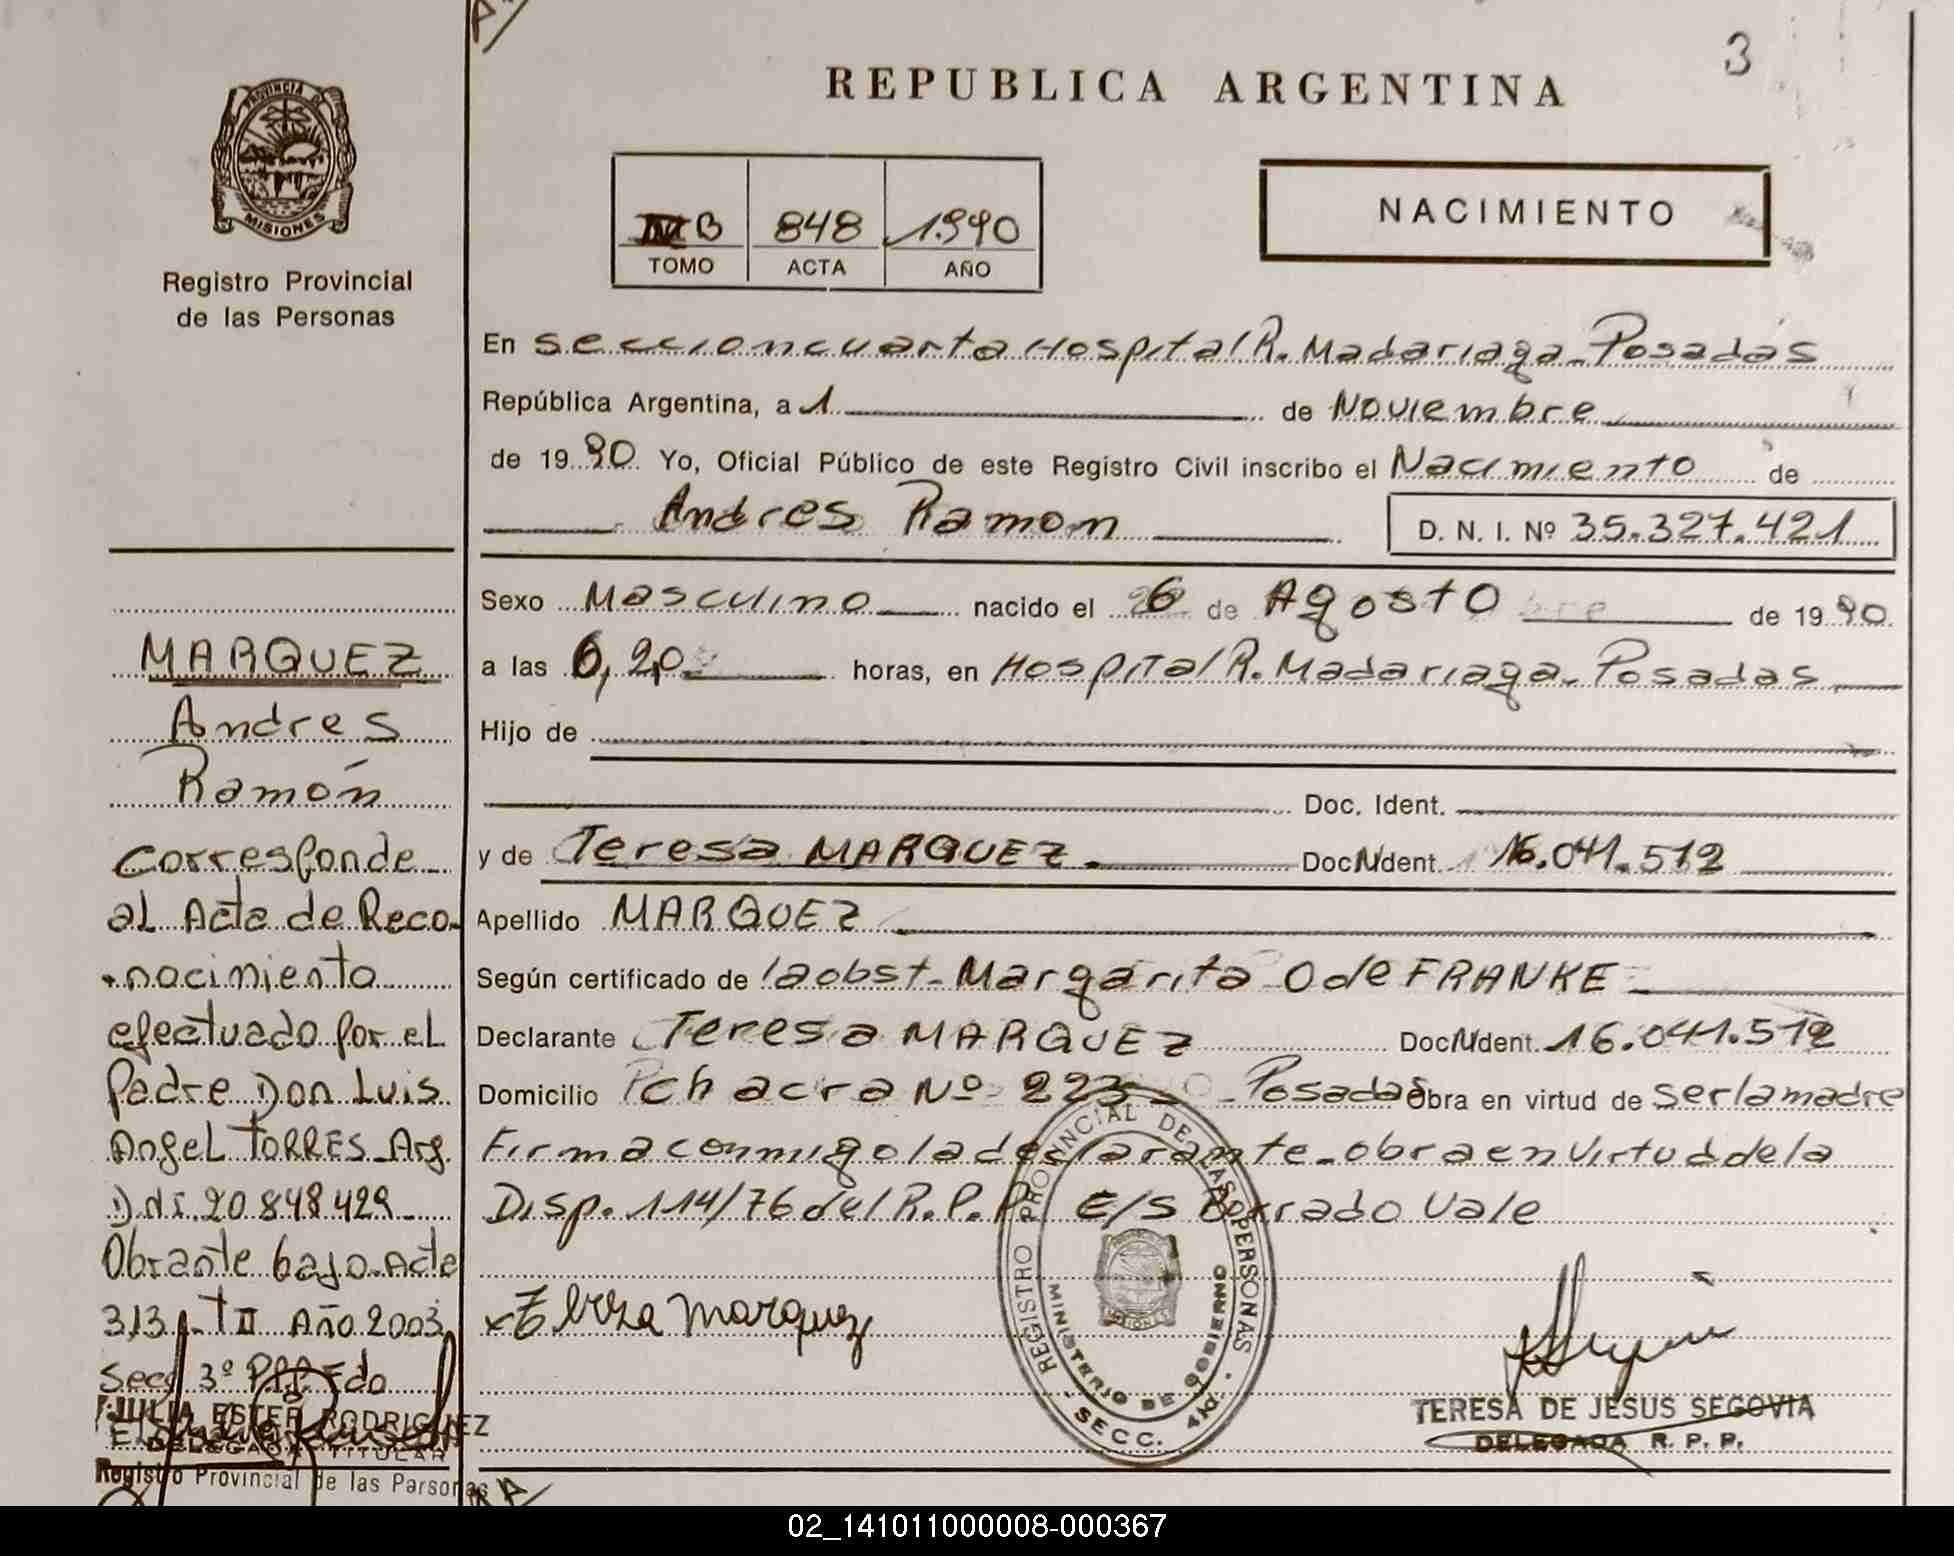 3
REPUBLICA ARGENTINA
PROVINCIA D
MISIONES
Registro Provincial
de las Personas
B 848 1.990
TOMO ACTA AÑO
NACIMIENTO
En seccion cuarta Hospital R. Madariaga - Posadas
República Argentina, a 1 de Noviembre
de 19 90 Yo, Oficial Público de este Registro Civil inscribo el Nacimiento de
Andres Ramon
D. N. I. Nº 35.327.421
Sexo Masculino nacido el 6 de Agosto de 19 90
a las 6,20 horas, en Hospital R. Madariaga - Posadas
Hijo de
Doc. Ident.
y de Teresa MARQUEZ Doc. Ident. 16.041.512
Apellido MARQUEZ
Según certificado de la obst. Margarita O de FRANKE
Declarante Teresa MARQUEZ Doc. Ident. 16.041.512
Domicilio Pch acra Nº 223 - Posadas obra en virtud de ser la madre
Firma conmigo la declarante - obra en virtud de la
Disp. 114/76 del R.P.P. E/S Borrado Vale
marquez
REGISTRO PROVINCIAL DE LAS PERSONAS
MINISTERIO DE GOBIERNO
- SECC. 4ta. -
TERESA DE JESUS SEGOVIA
DELEGADA R. P. P.
MARQUEZ
Andres
Ramón
Corresponde
al Acta de Reco-
nocimiento
efectuado por el
Padre Don Luis
Angel TORRES - Arg.
D.n.i. 20.848.429
Obrante bajo Acta
313 - T II Año 2003
Secc 3º
JULIA ESTER RODRIGUEZ
DELEGADA TITULAR
Registro Provincial de las Personas
02_141011000008-000367